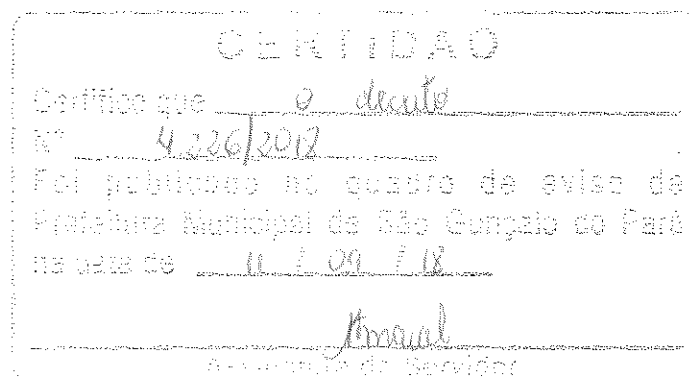 CERTIDÃO
Certifico que o decreto
Nº 4.226/2018
Foi publicado no quadro de aviso da
Prefeitura Municipal de São Gonçalo do Pará
na data de 11 / 09 / 18
Amaral
Assinatura do Servidor